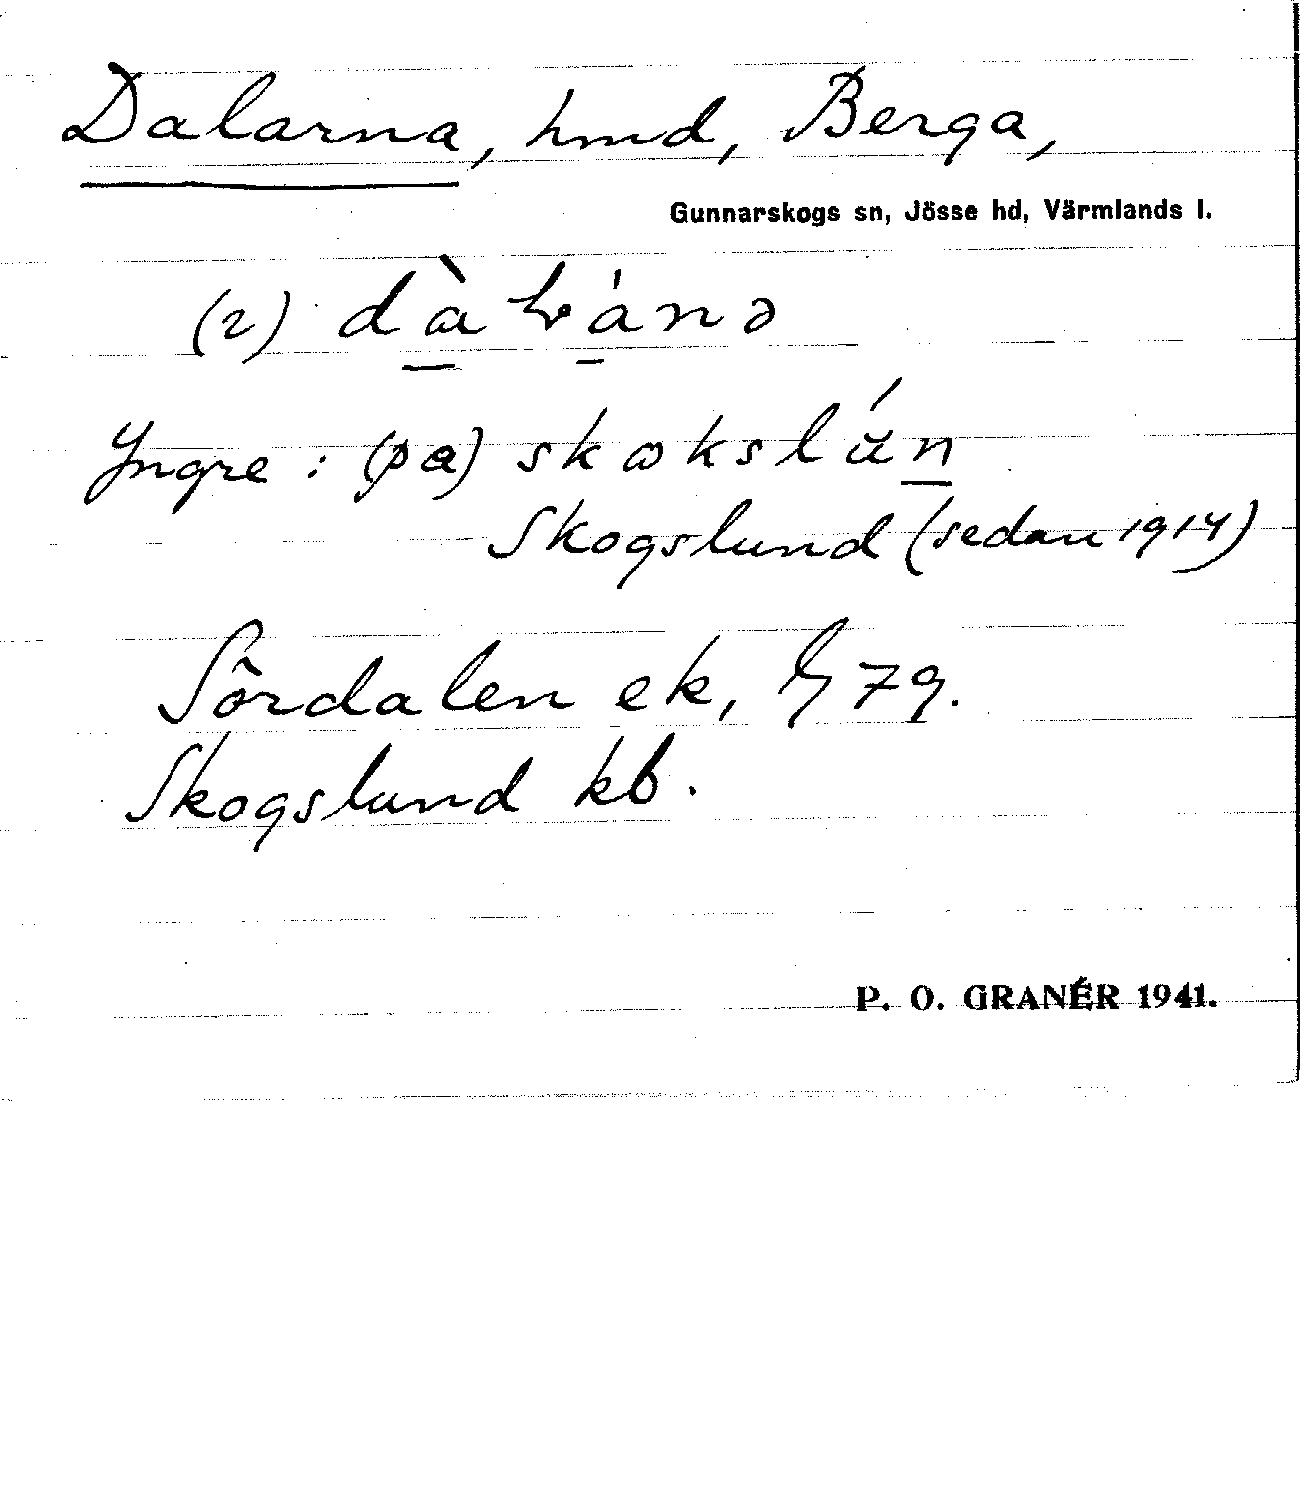 Dalarna, hmd, Berga,
Gunnarskogs sn, Jösse hd, Värmlands l.
(2)
Yngre: (pa) skokslún
Skogslund (sedan 1914)
Sördalen ek, 79.
Skogslund kb.
P. O. GRANÉR 1941.